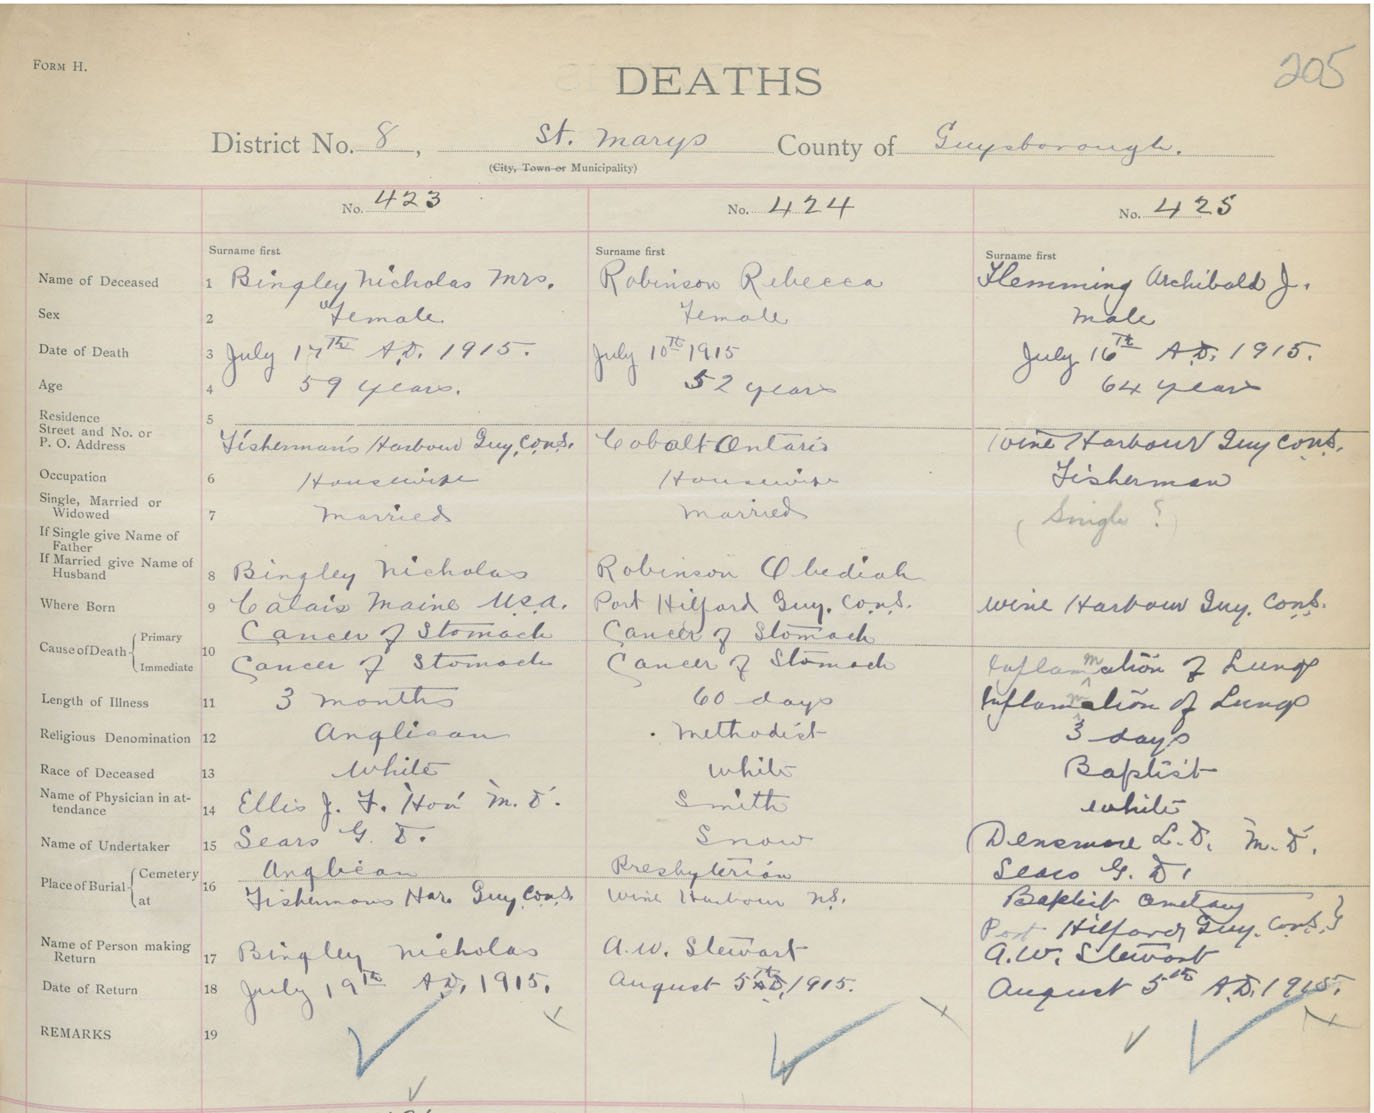 FORM H.
205
DEATHS
District No. 8, St. Marys County of Guysborough.
(City, Town or Municipality)
No. 423 No. 424 No. 425
Surname first Surname first Surname first
Name of Deceased 1 Bingley Nicholas Mrs. Robinson Rebecca Flemming Archibald J.
Sex 2 Female. Female Male
Date of Death 3 July 17th A.D. 1915. July 10th 1915 July 16th A.D. 1915.
Age 4 59 years. 52 years 64 years
Residence 5
Street and No. or
P. O. Address Fisherman's Harbour Guy. Co. N.S. Cobalt Ontario Wine Harbour Guy Co N.S.
Occupation 6 Housewife Housewife Fisherman
Single, Married or
Widowed 7 Married Married (Single ?)
If Single give Name of
Father
If Married give Name of
Husband 8 Bingley Nicholas Robinson Obediah
Where Born 9 Calais Maine U.S.A. Port Hilford Guy. Co. N.S. Wine Harbour Guy. Co N.S.
Cause of Death Primary 10 Cancer of Stomach Cancer of Stomach
Immediate Cancer of Stomach Cancer of Stomach Inflammation of Lungs
Length of Illness 11 3 months 60 days Inflammation of Lungs
Religious Denomination 12 Anglican Methodist 3 days
Race of Deceased 13 White White Baptist
Name of Physician in at-
tendance 14 Ellis J. F. Hon M. D. Smith White
Name of Undertaker 15 Sears G. D. Snow Densmore L. D. M. D.
Place of Burial Cemetery 16 Anglican Presbyterian Sears G. D.
at Fishermans Har. Guy. Co. N.S. Wine Harbour N.S. Baptist Cemetary
Port Hilford Guy. Co. N.S.
Name of Person making
Return 17 Bingley Nicholas A.W. Stewart A.W. Stewart
Date of Return 18 July 19th A.D. 1915. August 5th A.D. 1915. August 5th A.D. 1915.
REMARKS 19